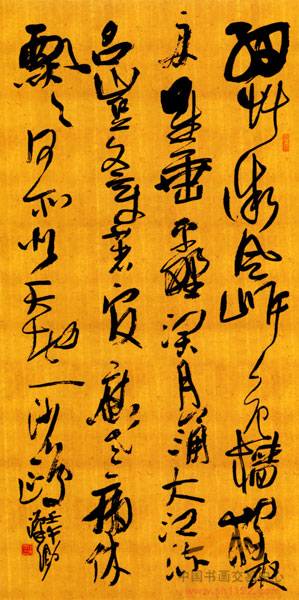 細草微風岸危檣獨夜
舟星垂平野闊月涌大江流
名豈文章著官應老病休
飄々何所似天地一沙鷗
中国书画交易中心